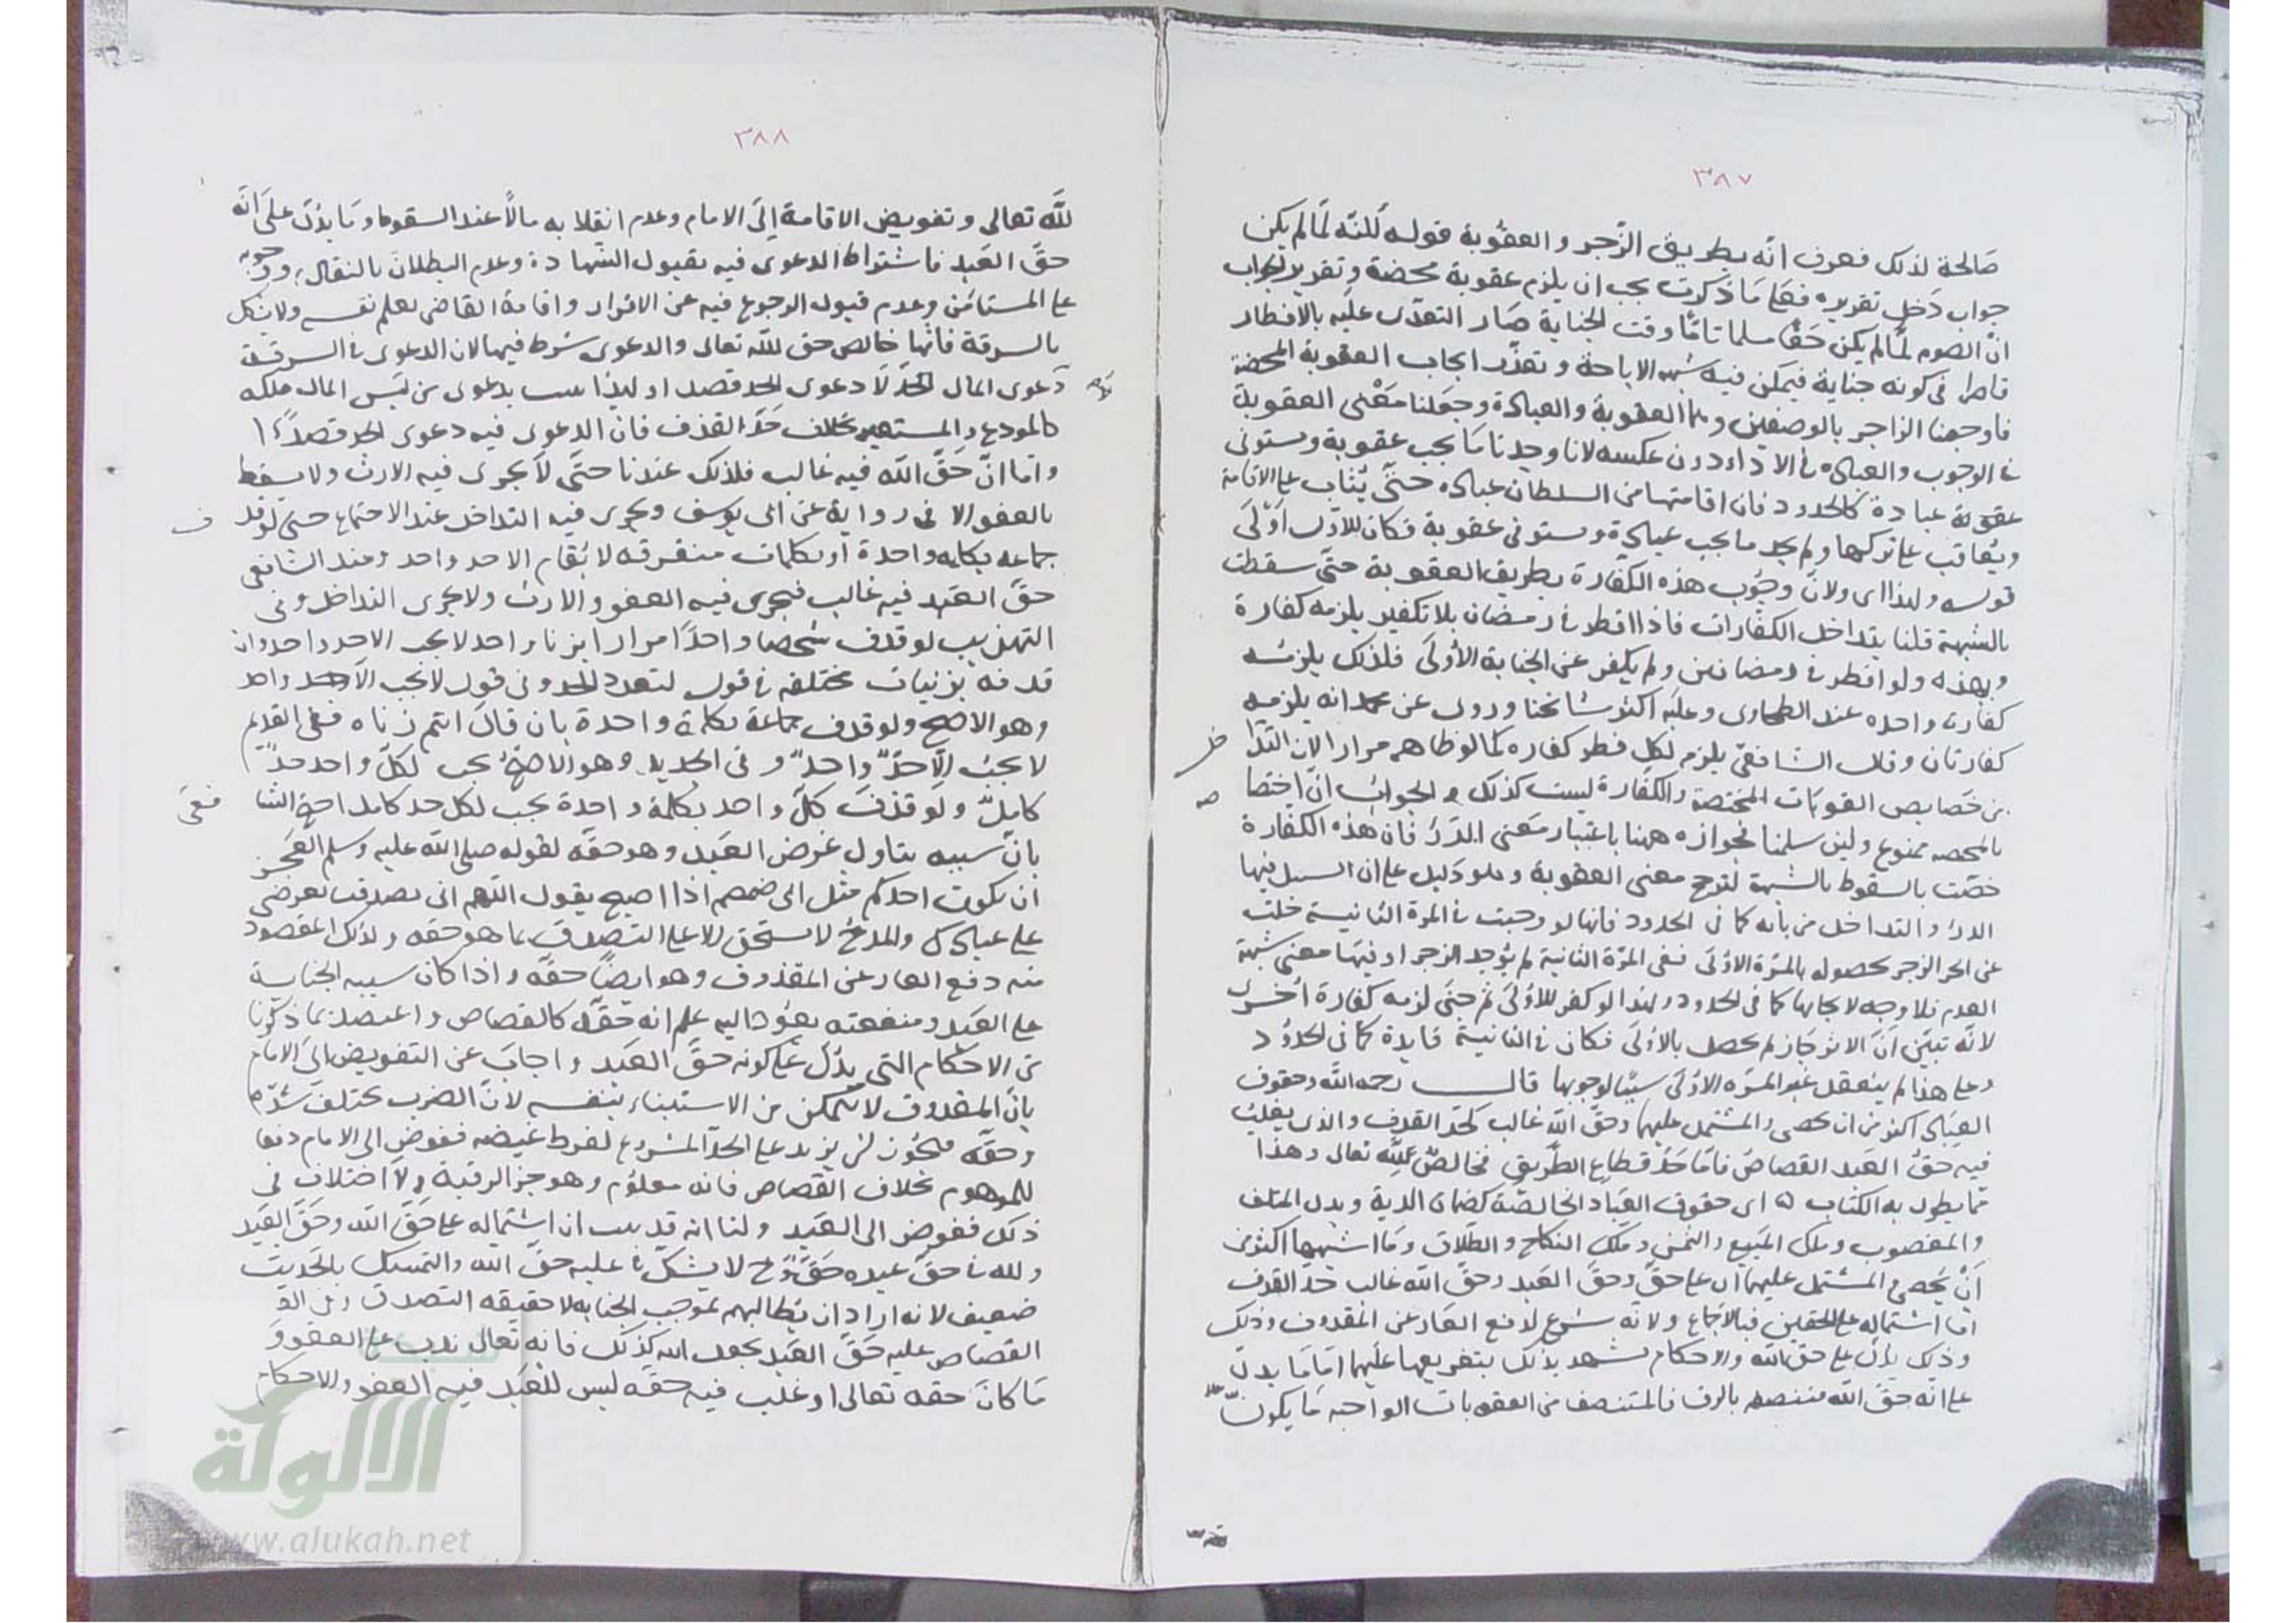 ٣٨٧
صالحة لذلك فعرف انه بطريق الزجر والعقوبة قوله لكنه لما لم يكن
جواب دخل تقريره فعلى ما ذكرت يجب ان يلزم عقوبة محضة وتقرير الجواب
ان الصوم لما لم يكن حقا مسلما تاما وقت الجناية صار التعدى عليه بالافطار
قاصرا فى كونه جناية فيمكن فيه شبهة الاباحة وتعذر ايجاب العقوبة المحضة
فاوجبنا الزاجر بالوصفين وهما العقوبة والعبادة وجعلنا معنى العقوبة
فى الوجوب والعبادة فى الاداء دون عكسه لانا وجدنا ما يجب عقوبة ويستوفى
عقوبة عبادة كالحدود فان اقامتها من السلطان عبادة حتى يثاب على الاقامة
ويعاقب على تركها ولم يجد ما يجب عبادة ويستوفى عقوبة فكان للاول اولى
قوله ولهذا اى ولان وجوب هذه الكفارة بطريق العقوبة حتى سقطت
بالشبهة قلنا بتداخل الكفارات فاذا افطر فى رمضان بلا تكفير يلزمه كفارة
وبهذه ولو افطر فى رمضانين ولم يكفر عن الجناية الاولى فلذلك يلزمه
كفارة واحده عند الطحاوى وعليه اكثر مشائخنا وروى عن محمد انه يلزمه
كفارتان وقال الشافعى يلزم لكل فطر كفاره كما لو ظاهر مرارا لان التدا
خل
من خصايص العقوبات المختصة والكفارة ليست كذلك والجواب ان اختصا
صه
بالمحصه ممنوع ولين سلمنا فجوازه ههنا باعتبار معنى الدرء فان هذه الكفارة
خصت بالسقوط بالشبهة لترجح معنى العقوبة وهو دليل على ان السبيل فيها
الدرء والتداخل من بابه كما فى الحدود فانها لو وجبت فى المرة الثانية خلت
عن الزجر لحصوله بالمرة الاولى ففى المرة الثانية لم يوجد الزجر او فيها معنى شبهة
العدم فلا وجه لايجابها كما فى الحدود ولهذا لو كفر للاولى ثم جنى لزمه كفارة اخرى
لانه تبين ان الانزجار لم يحصل بالاولى فكان فى الثانية فايدة كما فى الحدود
وعلى هذا لم ينعقد غير المرة الاولى سببا لوجوبها قال رحمه الله وحقوق
العباد اكثر من ان يحصى والمشتمل عليهما وحق الله غالب كحد القذف والذى يغلب
فيه حق العبد القصاص فاما حد قطاع الطريق فخالص لله تعالى وهذا
مما يطول به الكتاب اى حقوق العباد الخالصة كضمان الدية وبدل المتلف
والمغصوب وملك المبيع والثمن وملك النكاح والطلاق وما اشبهها اكثر من
ان يحصى المشتمل عليهما اى على حق وحق العبد وحق الله غالب حد القذف
اما اشتماله على الحقين فبالاجماع ولانه شرع لدفع العار عن المقذوف وذلك
وذلك يدل على حق الله والاحكام تشهد بذلك بتفريعها عليهما اما ما يدل
على انه حق الله متنصف بالرق فالمتنصف من العقوبات الواجبة ما يكون
٣٨٨
لله تعالى وتفويض الاقامة الى الامام وعدم انقلابه مالا عند السقوط وما يدل على انه
حق العبد فاشتراط الدعوى فيه بقبول الشهادة وعدم البطلان بالتقادم ووجوبه
على المستامن وعدم قبول الرجوع فيه عن الاقرار واقامة القاضى بعلم نفسه ولا يشكل
بالسرقة فانها خالص حق لله تعالى والدعوى شرط فيها لان الدعوى فى السرقة
دعوى المال لا دعوى الحد قصدا ولهذا بدعوى من ليس المال ملكه
كالمودع والمستعير بخلاف حد القذف فان الدعوى فيه دعوى الحد قصدا
واما ان حق الله فيه غالب فلذلك عندنا حتى لا يجرى فيه الارث ولا يسقط
بالعفو الا فى رواية عن ابى يوسف ويجرى فيه التداخل عند الاجتماع حتى لو قذ
ف
جماعه بكلمه واحدة او بكلمات متفرقه لا يقام الا حد واحد وعند الشافعى
حق العبد فيه غالب فيجرى فيه العفو والارث ولا يجرى التداخل وفى
التهذيب لو قذف شخصا واحدا مرارا بزنا واحد لا يجب الا حد واحد وان
قذفه بزنيات مختلفه فى قول لتعدد الحد وفى قول لا يجب الا حد واحد
وهو الاصح ولو قذف جماعة بكلمة واحدة بان قال انتم زناه ففى القديم
لا يجب الا حد واحد وفى الجديد وهو الاصح يجب لكل واحد حد
كامل ولو قذف كل واحد بكلمة واحدة يجب لكل حد كامل احتج الشا
فعى
بان سببه يتاول عرض العبد وهو حقه لقوله صلى الله عليه وسلم ايعجز
ان يكون احدكم مثل ابى ضمضم اذا اصبح يقول اللهم انى تصدقت بعرضى
على عبادك والمدح لا يستحق الا على التصدق بما هو حقه وكذلك المقصود
منه دفع العار عن المقذوف وهو ايضا حقه واذا كان سببه الجناية
على العبد ومنفعته يعود اليه علم انه حقه كالقصاص واعتضد بما ذكرنا
من الاحكام التى يدل على كونه حق العبد واجاب عن التفويض الى الامام
بان المقذوف لا يتمكن من الاستيفاء بنفسه لان الضرب يختلف شدة
وحقه فيكون ان يزيد على الحد المشروع لفرط غيضه ففوض الى الامام دفعا
للموهوم بخلاف القصاص فانه معلوم وهو جز الرقبة ولا اختلاف فى
ذلك ففوض الى العبد ولنا انه قد ثبت ان اشتماله على حق الله وحق العبد
ولله فى حق عبده حق لا يشكل فى غلبه حق الله والتمسك بالحديث
ضعيف لانه اراد ان يطالبهم بموجب الجنايه لا حقيقة التصدق وفى
القصاص غلبه حق العبد بجعل الله كذلك فانه تعالى ندب على العفو و
ما كان حقه تعالى او غلب فيه حقه ليس للعبد فيه العفو والاحكام
الألوكة
www.alukah.net